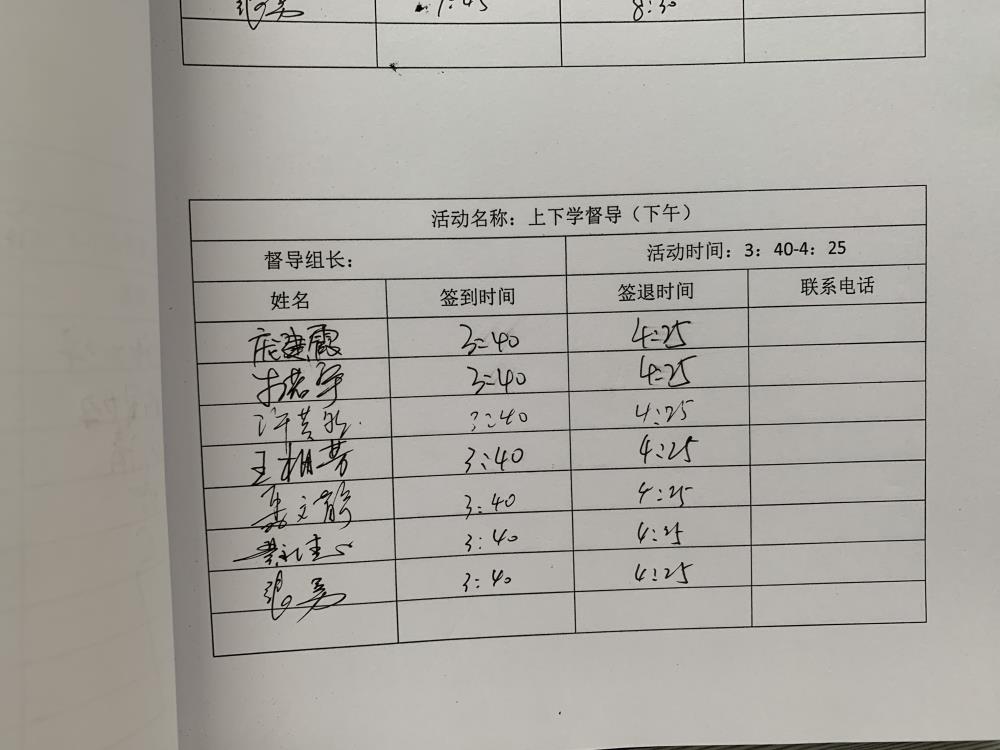 7:45 8:30
活动名称：上下学督导（下午）
督导组长： 活动时间：3：40-4：25
姓名 签到时间 签退时间 联系电话
庞建霞 3:40 4:25
3:40 4:25
许 3:40 4:25
王 3:40 4:25
文静 3:40 4:25
3:40 4:25
张 3:40 4:25